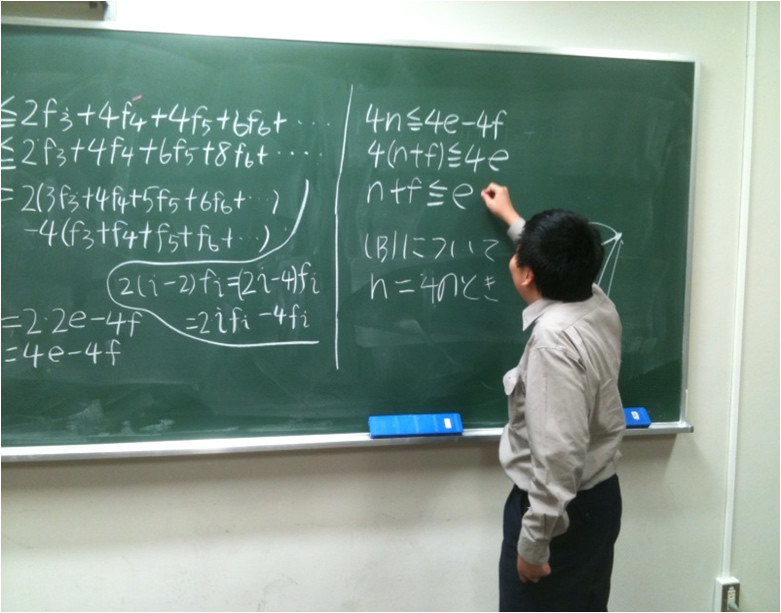 ≦2f₃+4f₄+4f₅+6f₆+‥‥
≦2f₃+4f₄+6f₅+8f₆+‥‥
=2(3f₃+4f₄+5f₅+6f₆+‥)
-4(f₃+f₄+f₅+f₆+‥)
2(i-2)fᵢ=(2i-4)fᵢ
=2ifᵢ-4fᵢ
=2・2e-4f
=4e-4f
4n≦4e-4f
4(n+f)≦4e
n+f≦e
(B)について
n=4のとき